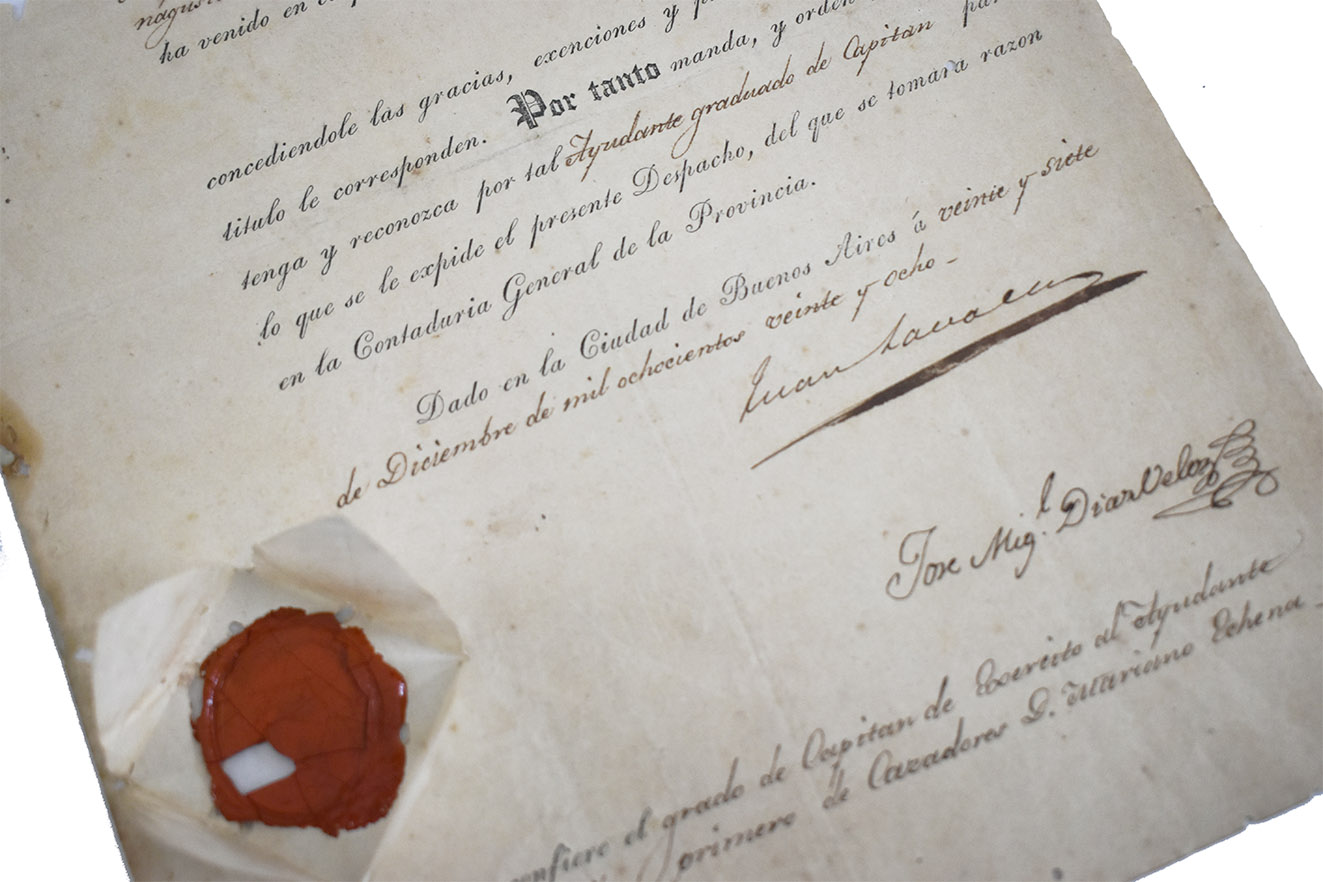 ha venido en
concediendole las gracias, exenciones y
titulo le corresponden. Por tanto manda, y orden
tenga y reconozca por tal Ayudante graduado de Capitan
lo que se le expide el presente Despacho, del que se tomara razon
en la Contaduria General de la Provincia.
Dado en la Ciudad de Buenos Aires á veinte y siete
de Diciembre de mil ochocientos veinte y ocho _
Juan Lavalle
Jose Mig.l Diaz Velez
el grado de Capitan de Exercito al Ayudante
primero de Cazadores D. Mariano Echena